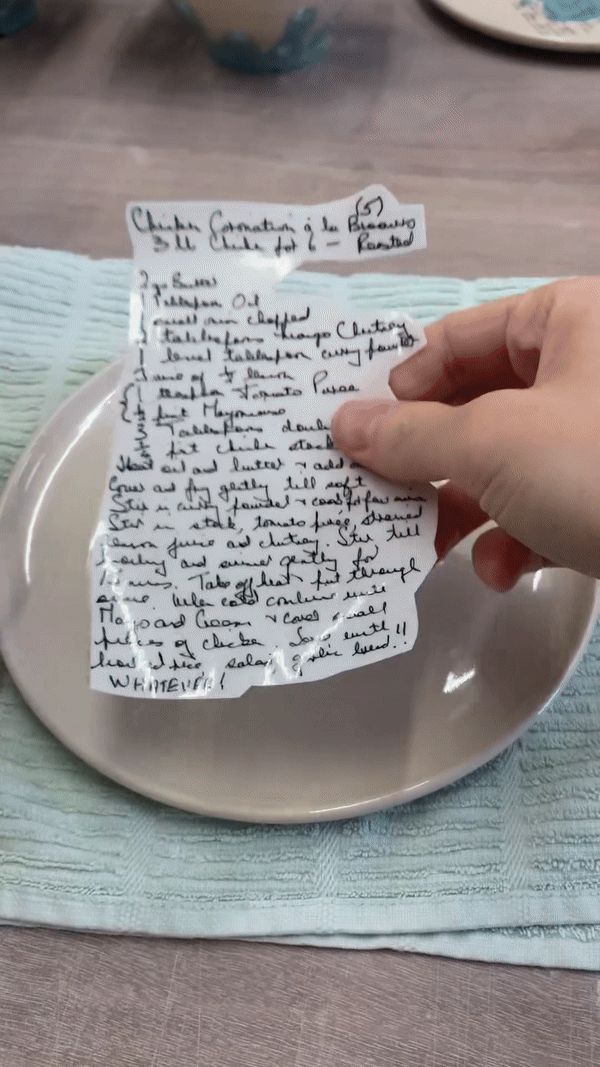 Chicken Coronation à la
(5)
3 lb Chicken for 6 — Roasted
Butter
1 Tablespoon Oil
small onion chopped
tablespoons Mango Chutney
1 level tablespoon curry powder
Juice of ½ lemon
Tomato Puree
pint Mayonnaise
Tablespoons double
pt chicken stock
Heat oil and butter & add
Cover and fry gently till soft
Stir in curry powder & cook for few mins
Stir in stock, tomato puree, strained
lemon juice and chutney. Stir till
boiling and simmer gently for
mins. Take off heat put through
sieve. When cold combine with
Mayo and Cream & cover small
pieces of chicken. Serve with
rice salad garlic bread!!
WHATEVER!